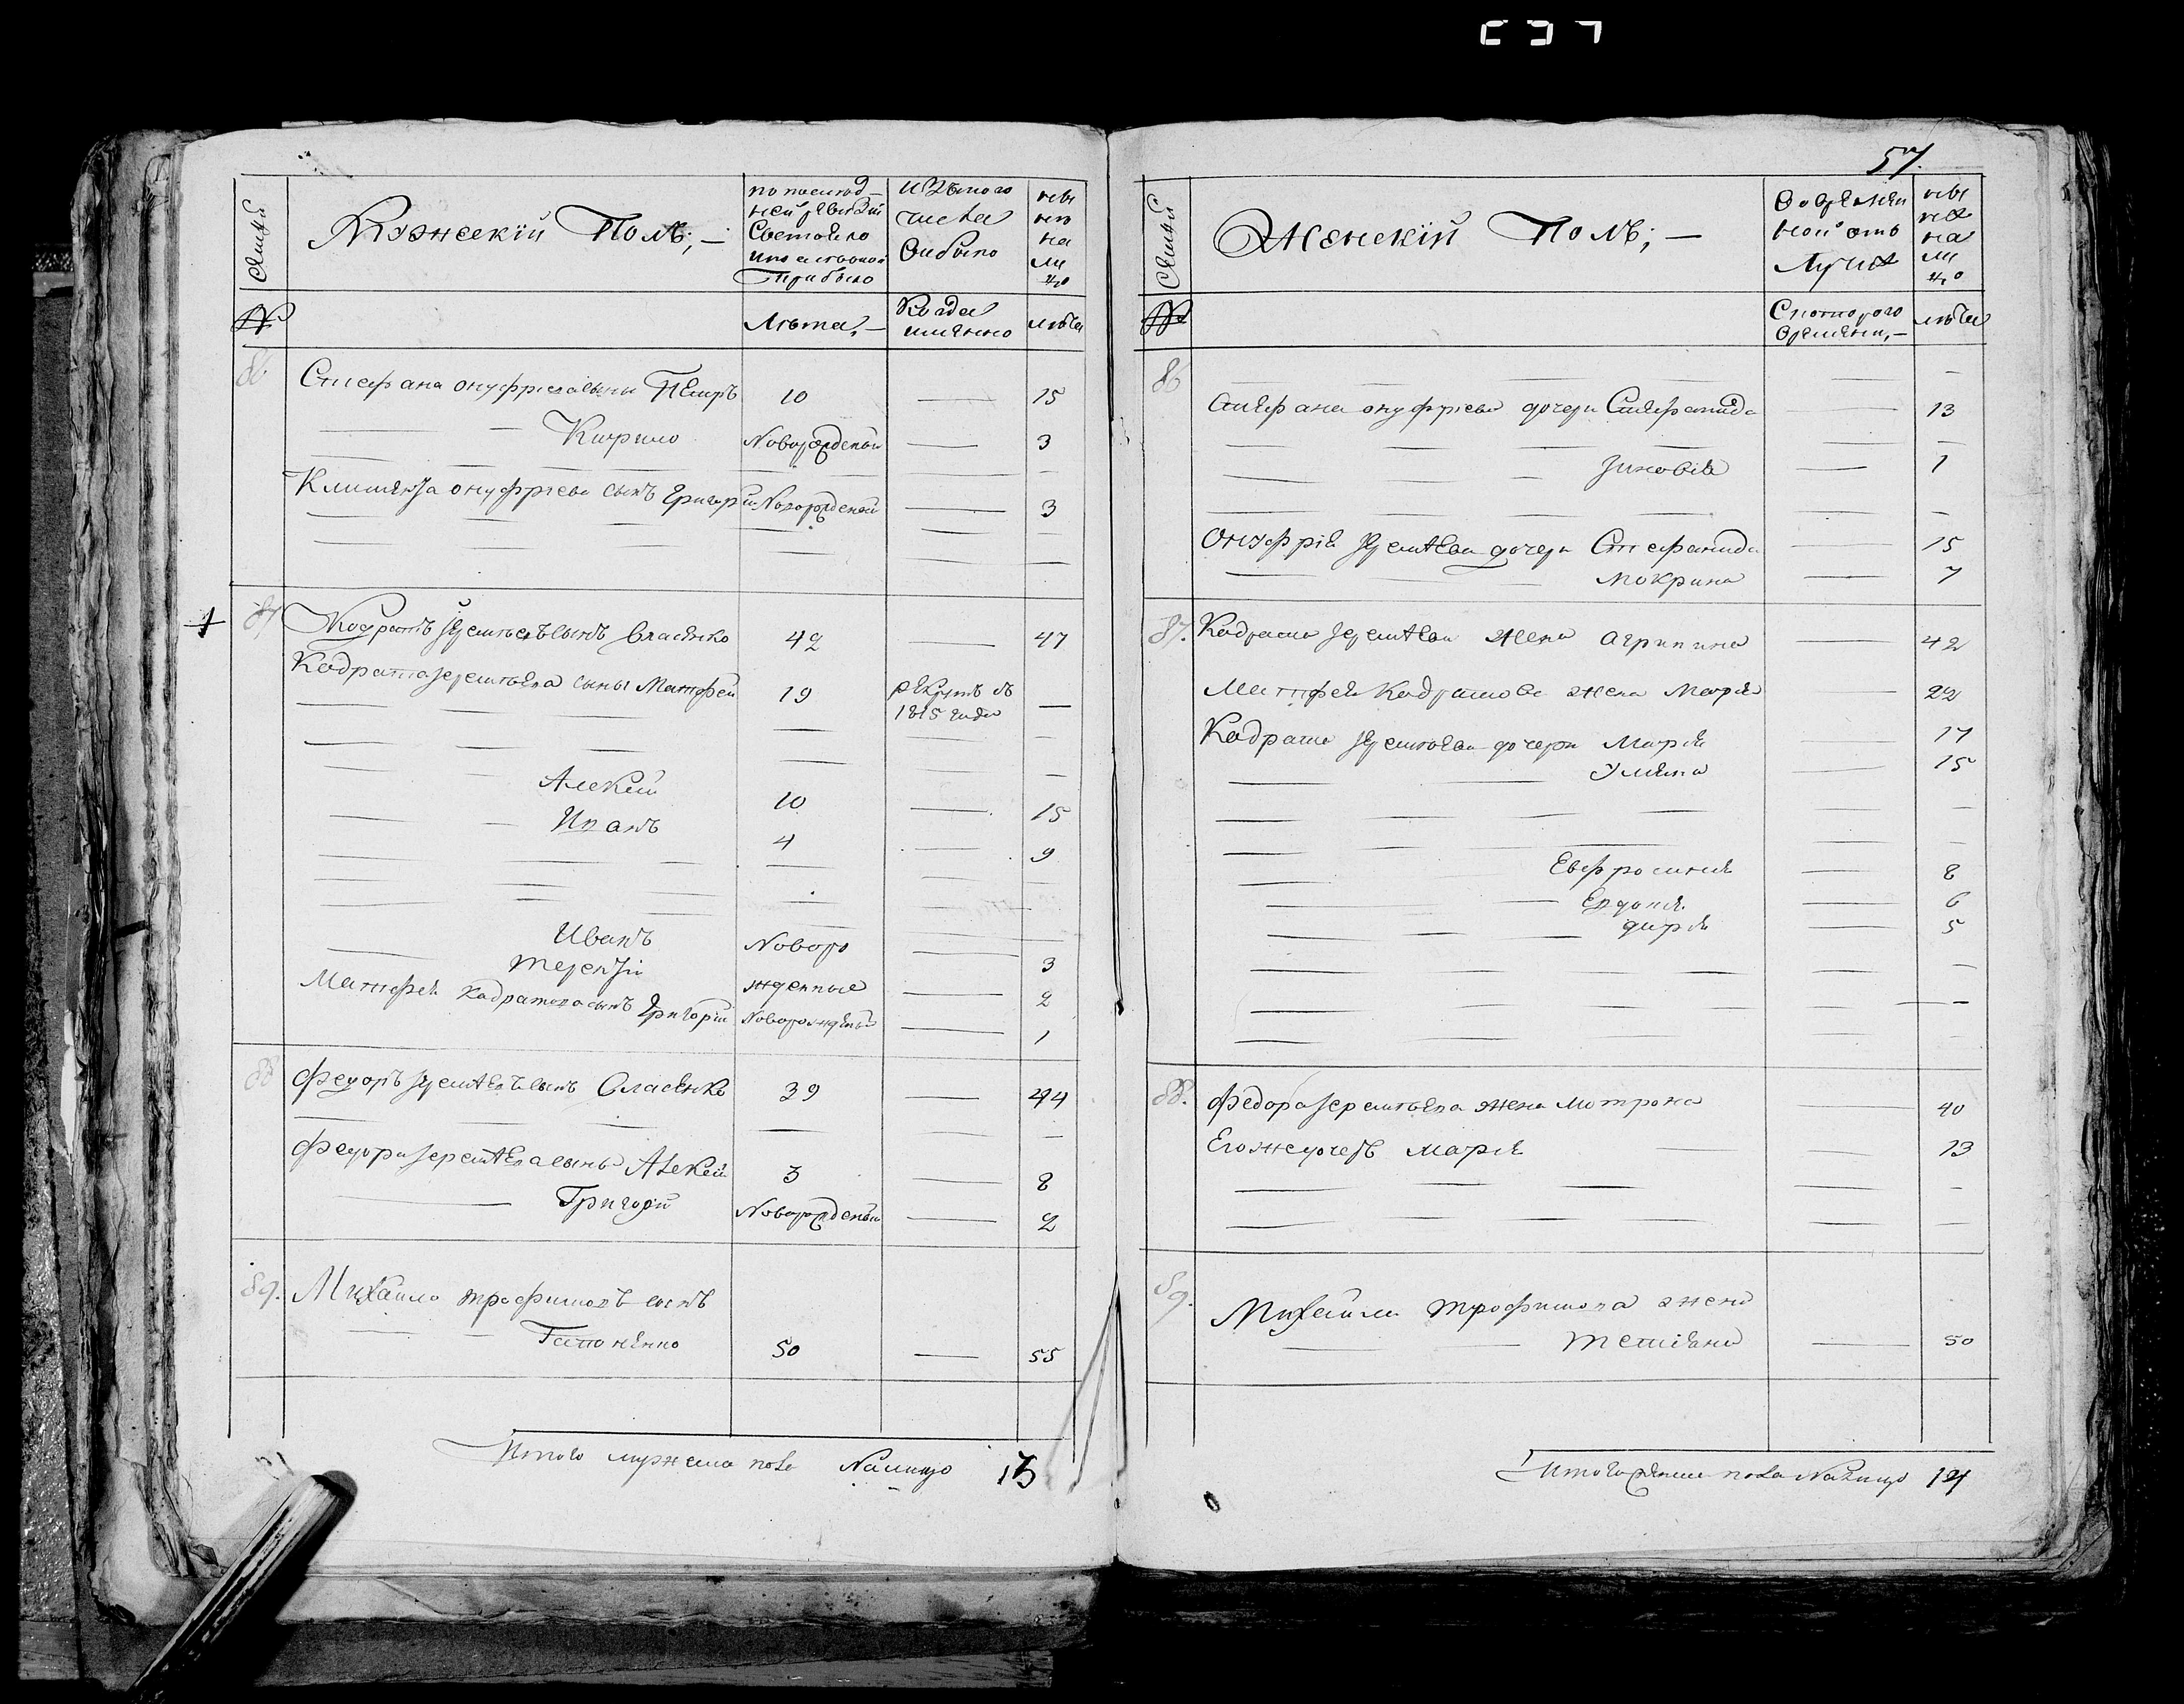 Мужескій Полъ; —
по послед-
ней ревизіи
Состояло
и после оной
Прибыло
Изъ того
числа
Выбыло
ныне
на
ли
цо
Семьи
№
Лета, —
Когда
имянно
лета
86.
Стефана онуфріева сыны Петръ 10 — 15
Кирило Новорожденый — 3
Климентія онуфріева сынъ Григорій Новорожденой — 3
87
Кодратъ Яремѣевъ сынъ Власенко 42 — 47
Кодрата Яремѣева сыны Матфей 19 рекрутъ въ — 
1815 годе
Алексей 10 — 15
Иванъ 4 — 9
Иванъ Новоро — 3
Терентій жденные — 2
Матфея Кодратова сынъ Григорій Новорожденый — 1
88
Федоръ Яремѣевъ сынъ Власенко 39 — 44
Федора Яремѣева сыны Алексей 3 — 8
Григорій Новорожденый — 2
89.
Михайло трофимовъ сынъ
Гапоненко 50 — 55
Итого мужеска пола Налицо 13
57.
Женскій Полъ; —
Во времен
ной отъ
Лучке
ныне
на
ли
цо
Семьи
№
С котораго
времени, —
лета
86
Стефана онуфріева дочери Стефанида — 13
Зиновія — 1
Онуфрія Яремѣева дочери Стефанида — 15
Мокрина — 7
87.
Кодрата Яремѣева жена Агрипина — 42
Матфея Кодратова жена Марія — 22
Кодрата Яремѣева дочери Марія 17
Уляна — 15
Евфросинія — 8
Евдокія — 6
Дарія — 5
88.
Федора Яремѣева жена Мотрона — 40
Его же дочерь Марія — 13
89.
Михайла Трофимова жена
Татіана — 50
Итого женска пола Налицо 14